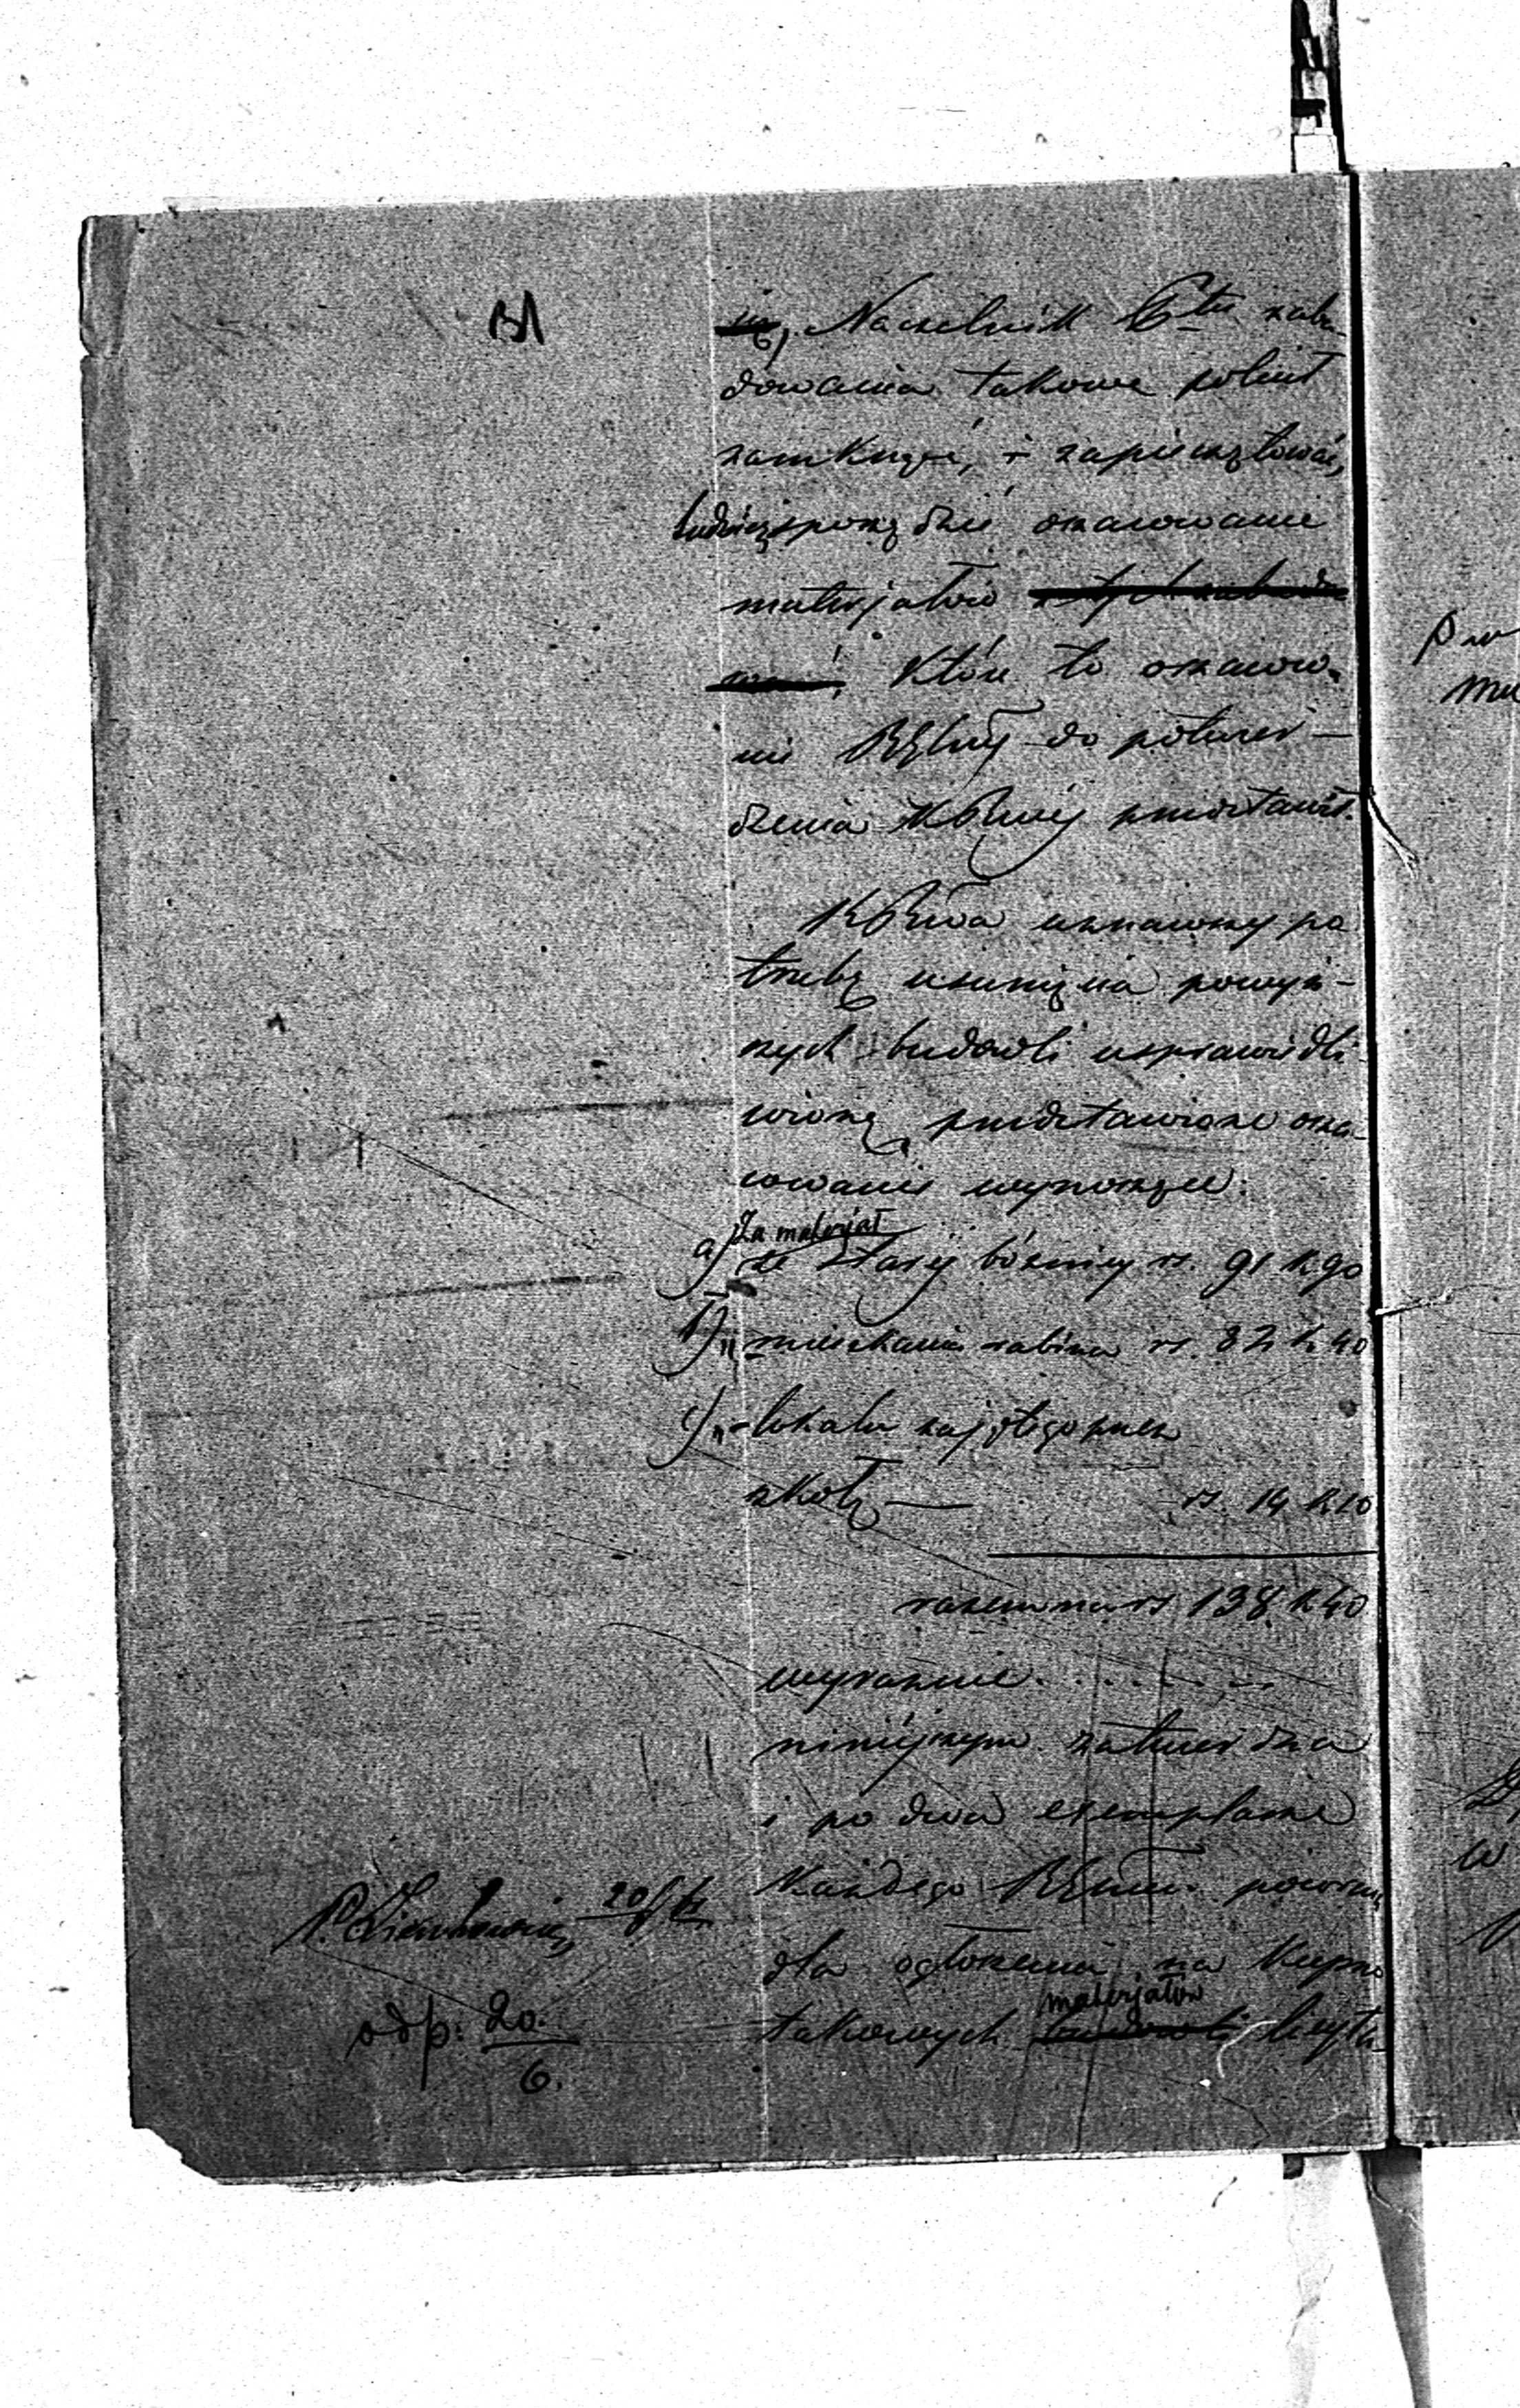 Naczelnik Ctu zabu-
dowania takowe polecił
zamknąć, i zapieczętować,
tudzież sporządzić oszacowanie
materjałów
które to oszacowa-
nie do potwier-
dzenia KRwéj przedstawił.
KRwa uznawszy po
trzebę usunięcia powyż-
szych budowli usprawiedli-
wioną, przedstawione osza-
cowanie wynoszące:
a) Za materjał
ze starej bóżnicy rs. 91 k 90
b) " mieszkania rabina rs. 32 k 40
c) " lokalu zajętego przez
szkołę — rs. 14 k 10
razem na rs 138 k 40
wyraźnie . . . . . . .
niniéjszym zatwierdza
i po dwa exemplarze
każdego
dla ogłoszenia na kupno
takowych materjałów budowli licyta-
20/6
odp: 20.
6.